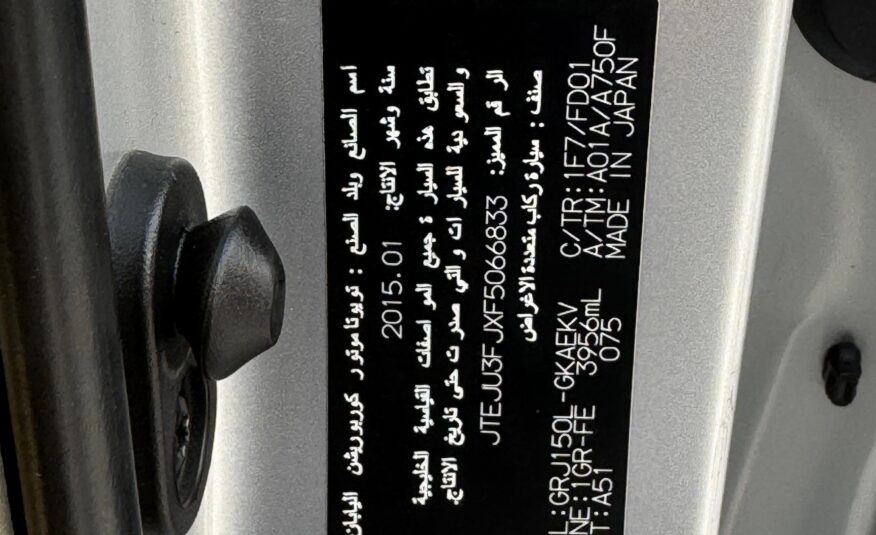 اسم الصانع وبلد الصنع : تويوتا موتور كوربوريشن اليابان
سنة وشهر الانتاج: 2015.01
تطابق هذه السيارة جميع المواصفات القياسية الخليجية
والسعودية للسيارات والتي صدرت حتى تاريخ الانتاج.
الرقم المميز: JTEJU3FJXF5066833
صنف : سيارة ركاب متعددة الاغراض
L:GRJ150L-GKAEKV C/TR:1F7/FD01
NE:1GR-FE 3956mL A/TM:A01A/A750F
T:A51 075 MADE IN JAPAN